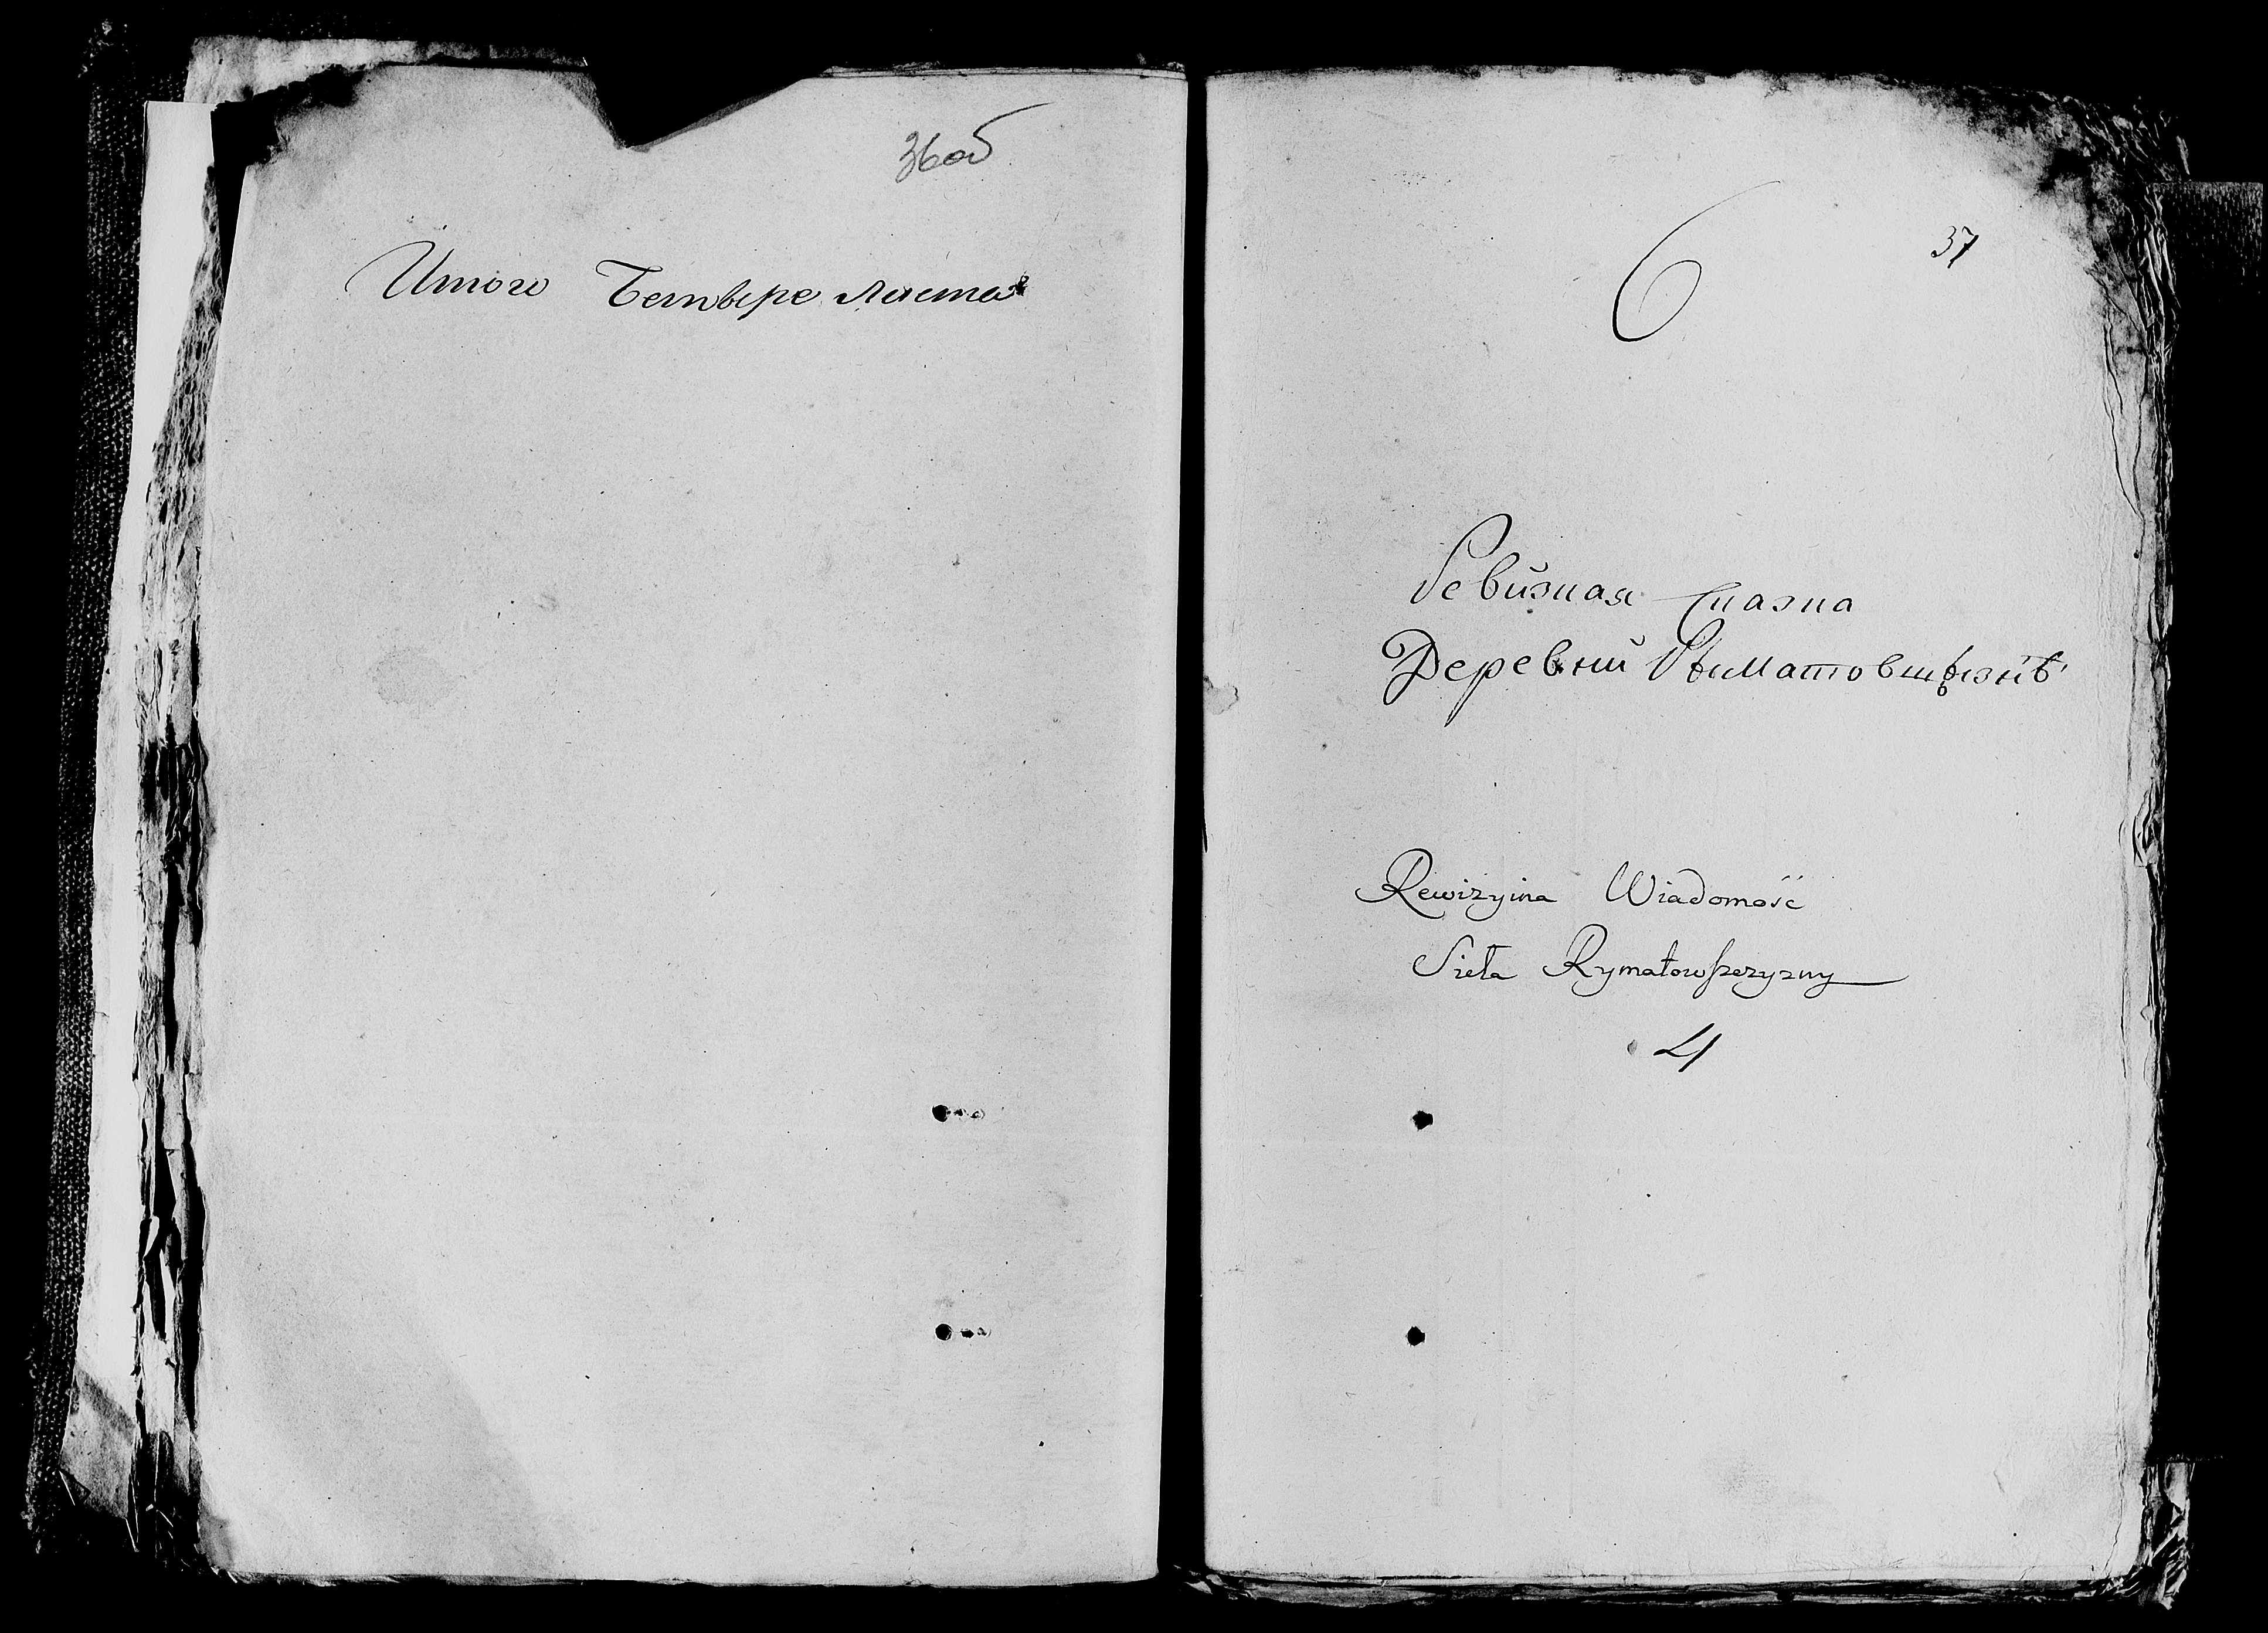 36об
Итого Четыре листа
6
37
Ревизная Сказка
Деревни Рыматовщизнѣ
Rewizyina Wiadomość
Sieła Rymatowszczyzny
4